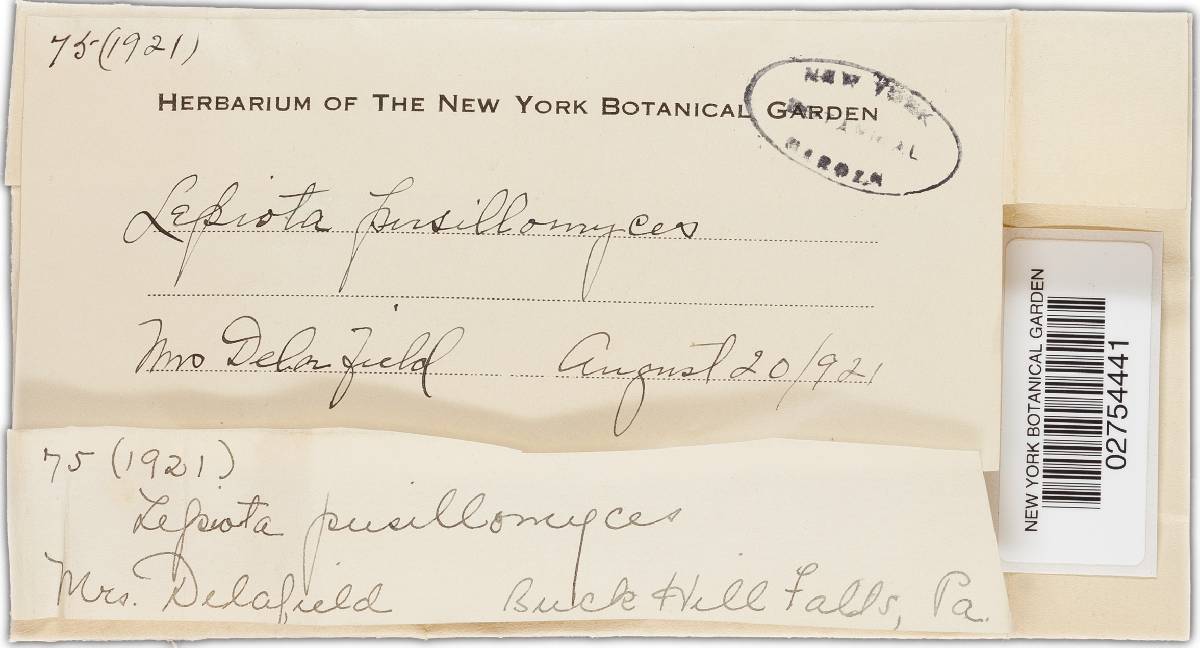 75 (1921)
HERBARIUM OF THE NEW YORK BOTANICAL GARDEN
NEW YORK
BOTANICAL
GARDEN
Lepiota pusillomyces
Mrs Delafield August 20/921
75 (1921)
Lepiota pusillomyces
Mrs. Delafield Buck Hill Falls, Pa.
NEW YORK BOTANICAL GARDEN
02754441